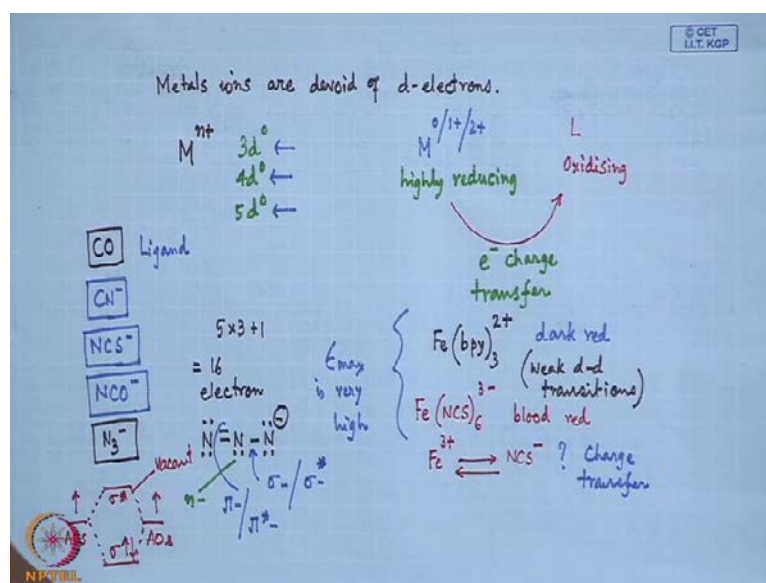 © CET
I.I.T. KGP
Metals ions are devoid of d-electrons.
M^n+ 3d° ←
4d° ←
5d° ←
M^0/1+/2+ L
highly reducing Oxidising
e⁻ charge
transfer
CO Ligand
CN⁻
NCS⁻
NCO⁻
N₃⁻
5 x 3 + 1
= 16
electron
N = N - N ⊖
n-
π-/π*-
σ-/σ-*
ϵmax
is very
high
Fe(bpy)₃²⁺ dark red
(weak d-d
transitions)
Fe(NCS)₆³⁻ blood red
Fe³⁺ ⇌ NCS⁻ ? Charge
transfer
vacant
σ*
AOs
σ
AOs
NPTEL